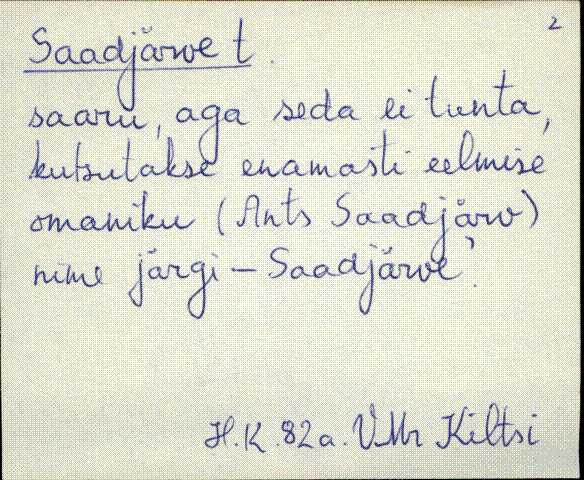 2
Saadjärve t.
saaru, aga seda ei tunta,
kutsutakse enamasti eelmise
omaniku (Ants Saadjärv)
nime järgi – Saadjärve'.
H.K. 82a. VMr Kiltsi